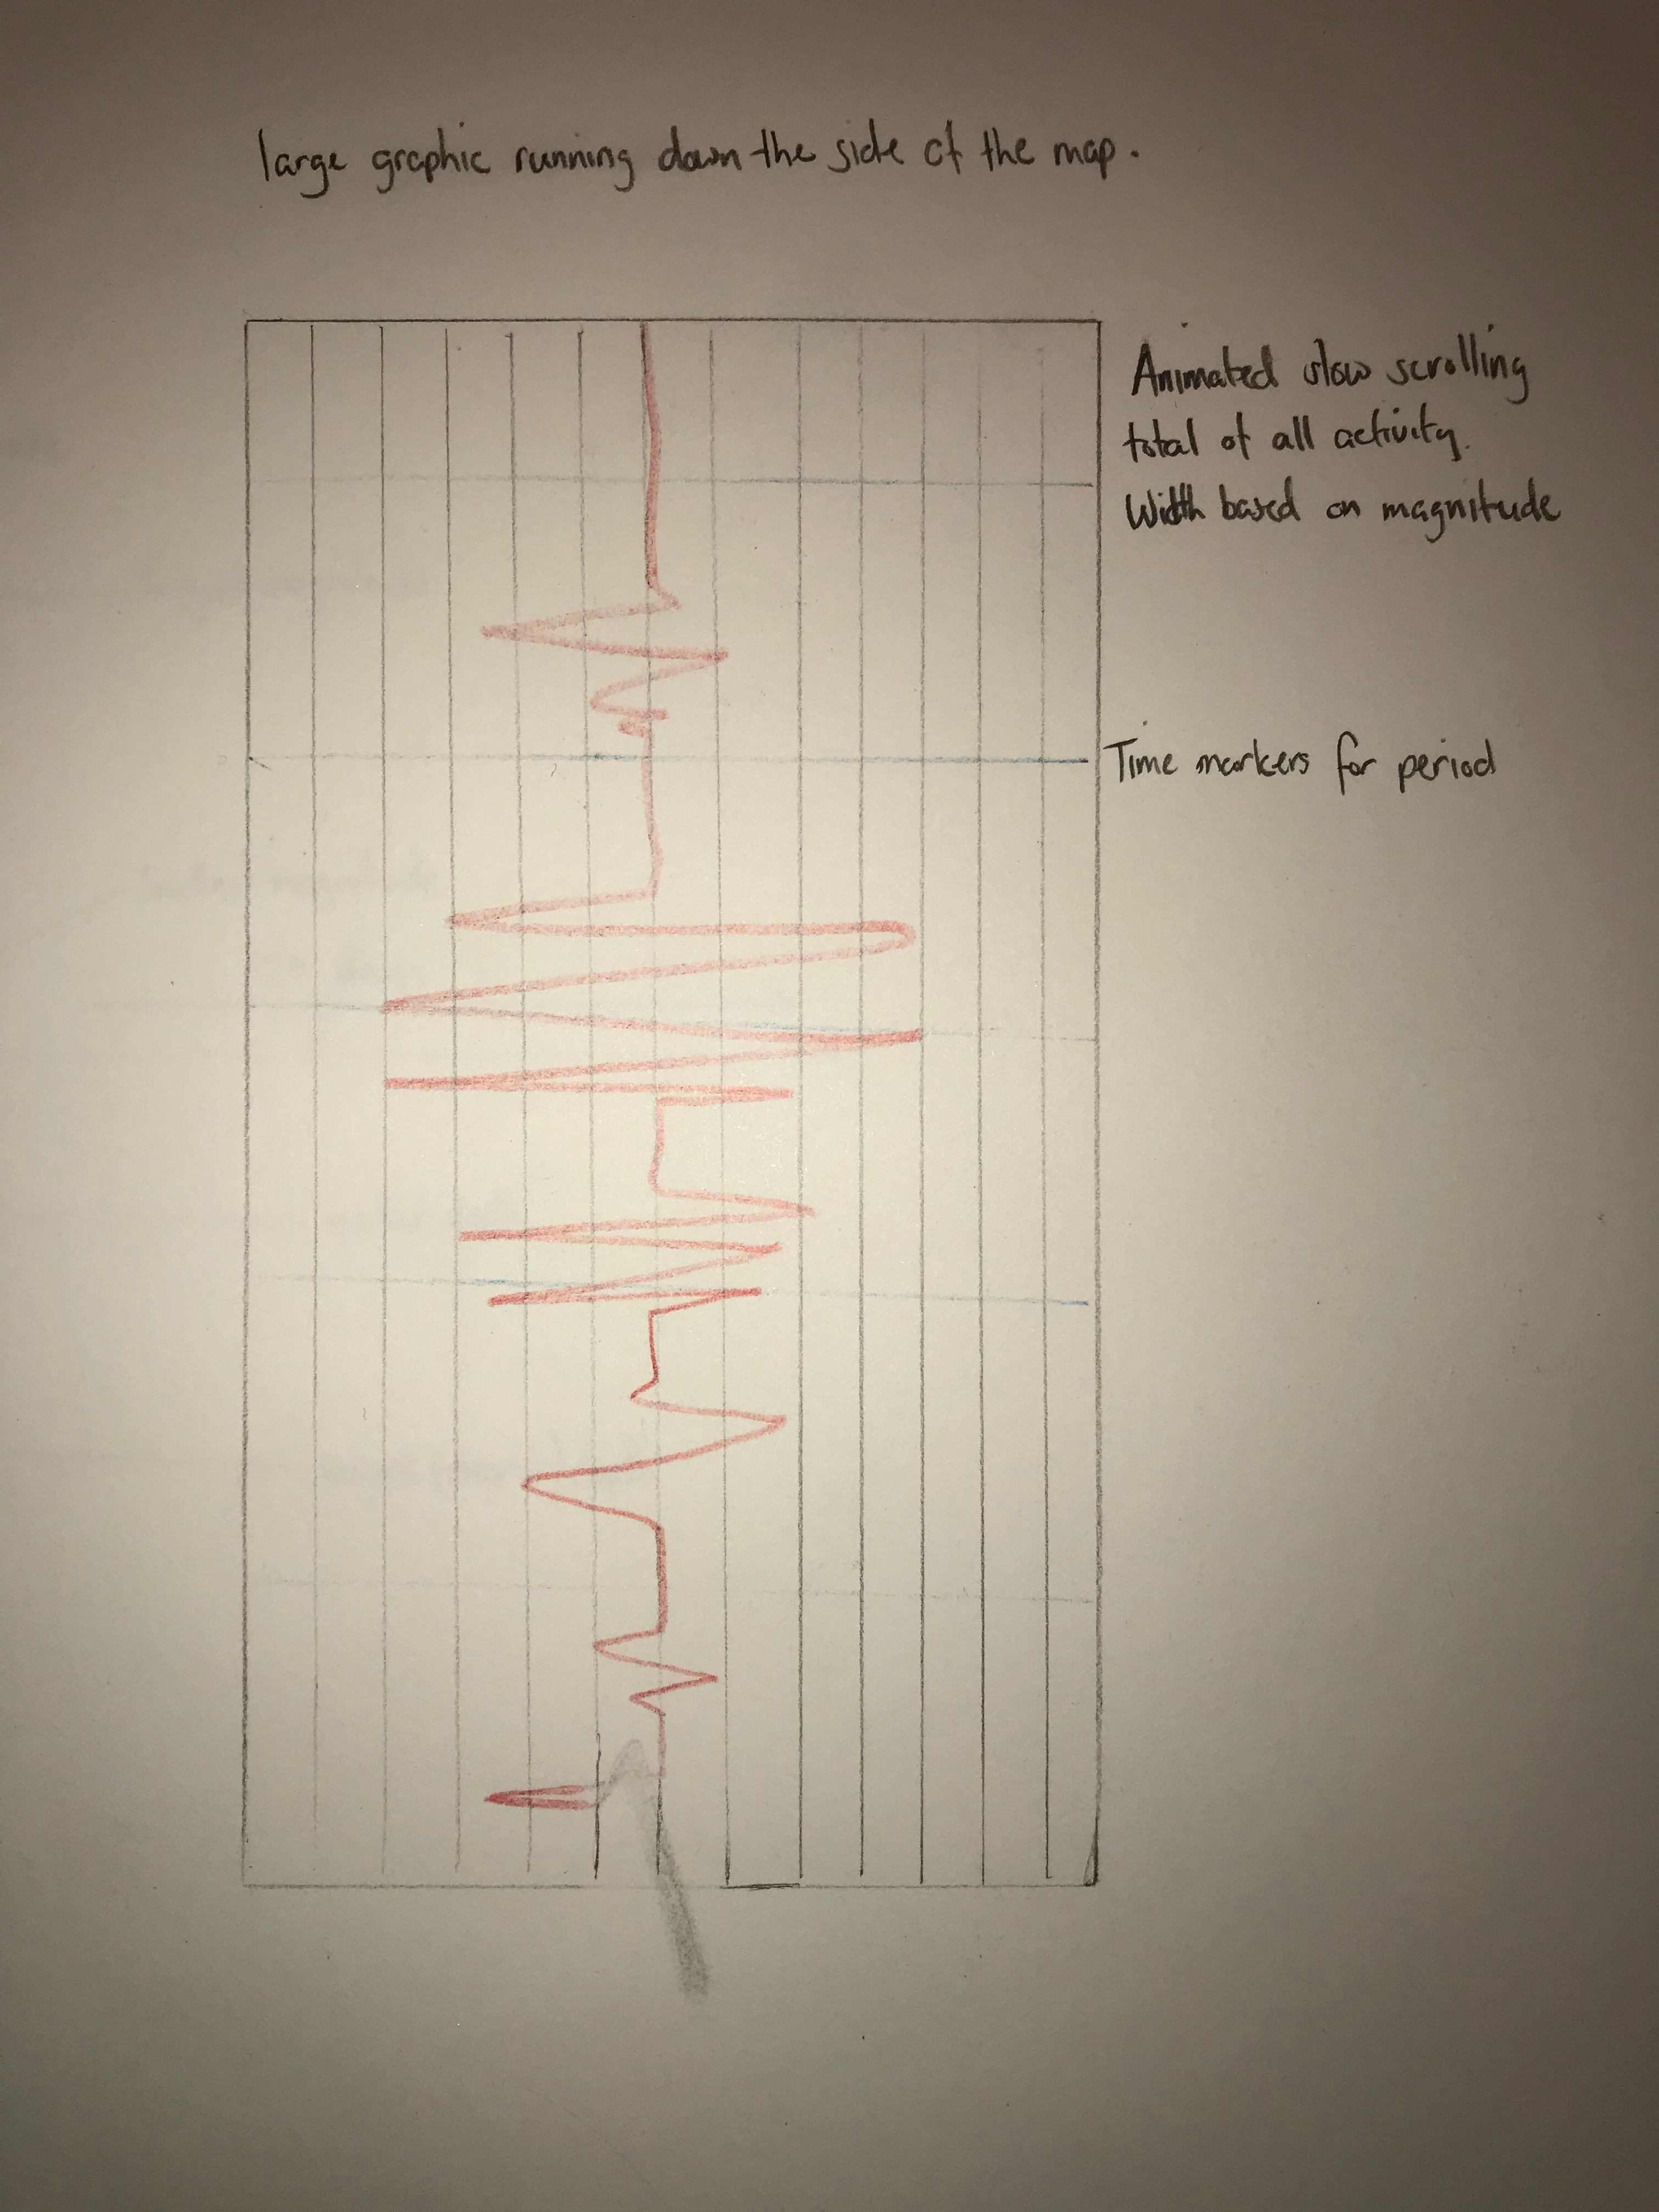 large graphic running down the side of the map.
Animated slow scrolling
total of all activity.
Width based on magnitude
Time markers for period